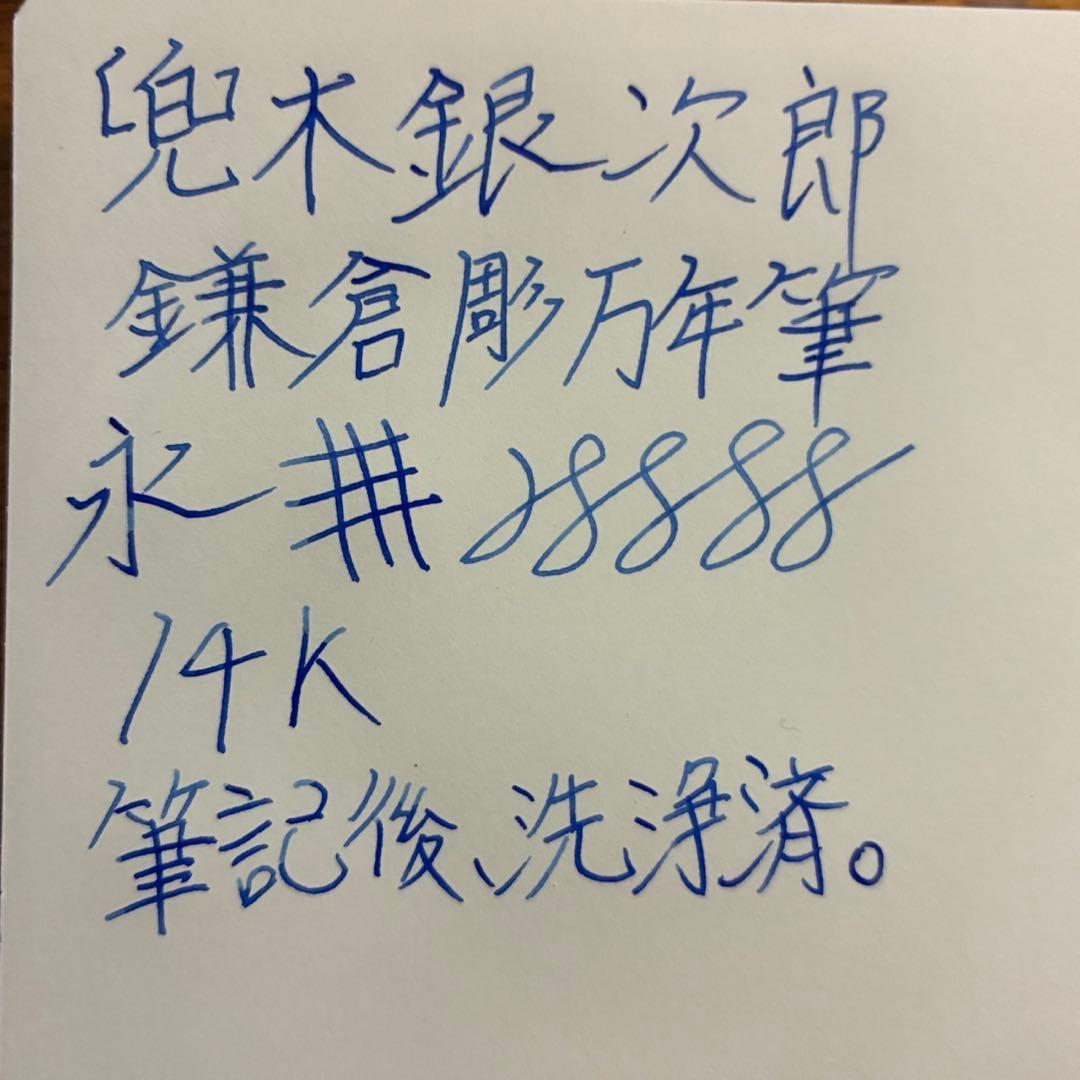 兜木銀次郎
鎌倉彫万年筆
永
14K
筆記後、洗浄済。